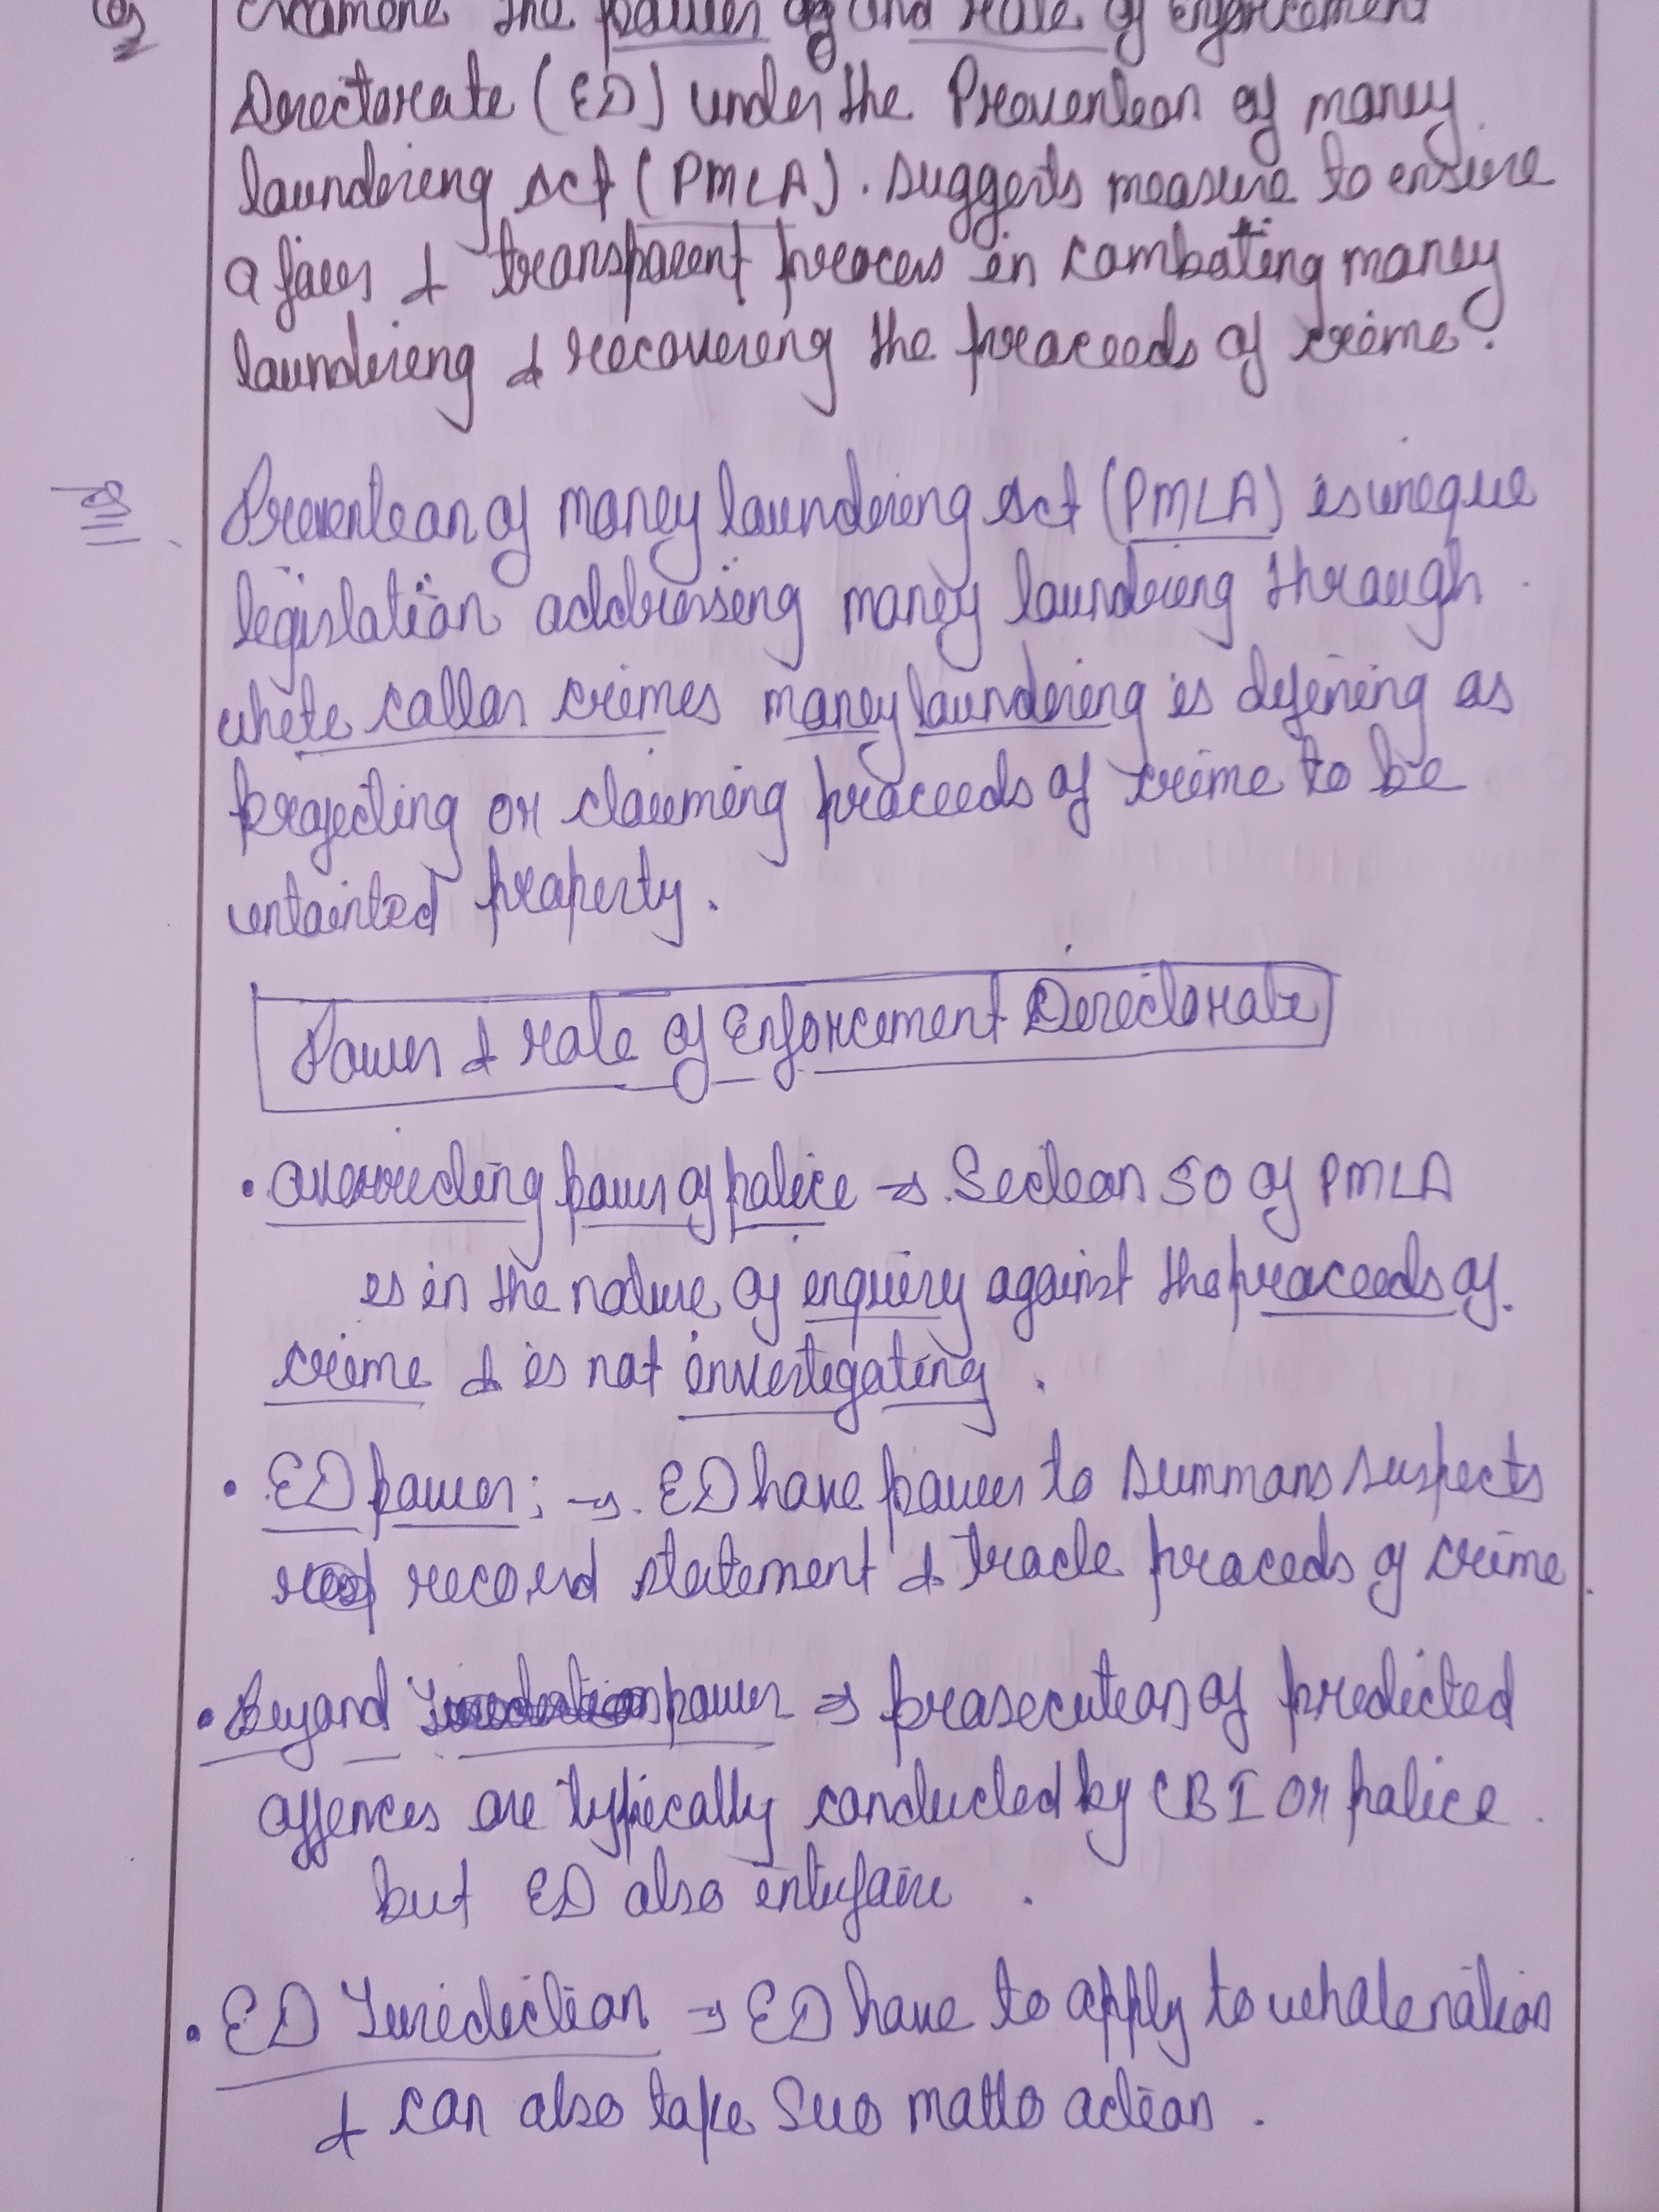 Q Examine the power of and role of Enforcement
Directorate (ED) under the Prevention of money
laundering Act (PMLA). Suggests measure to ensure
a fair & transparent process in combating money
laundering & recovering the proceeds of crime?
Prevention of money laundering Act (PMLA) is unique
legislation addressing money laundering through
white collar crimes money laundering is defining as
projecting or claiming proceeds of crime to be
untainted property.
Power & role of Enforcement Directorate
• Overriding power of police → Section 50 of PMLA
is in the nature of enquiry against the proceeds of
crime & is not investigating.
• ED power: → ED have power to summons suspects
record statement & tracle proceds of crime.
• Beyond power ⇒ prosecution of predicted
offences are typically conducted by CBI or police.
but ED also
• ED Jurisdiction ⇒ ED have to apply to whole nation
& can also take Suo motto action.